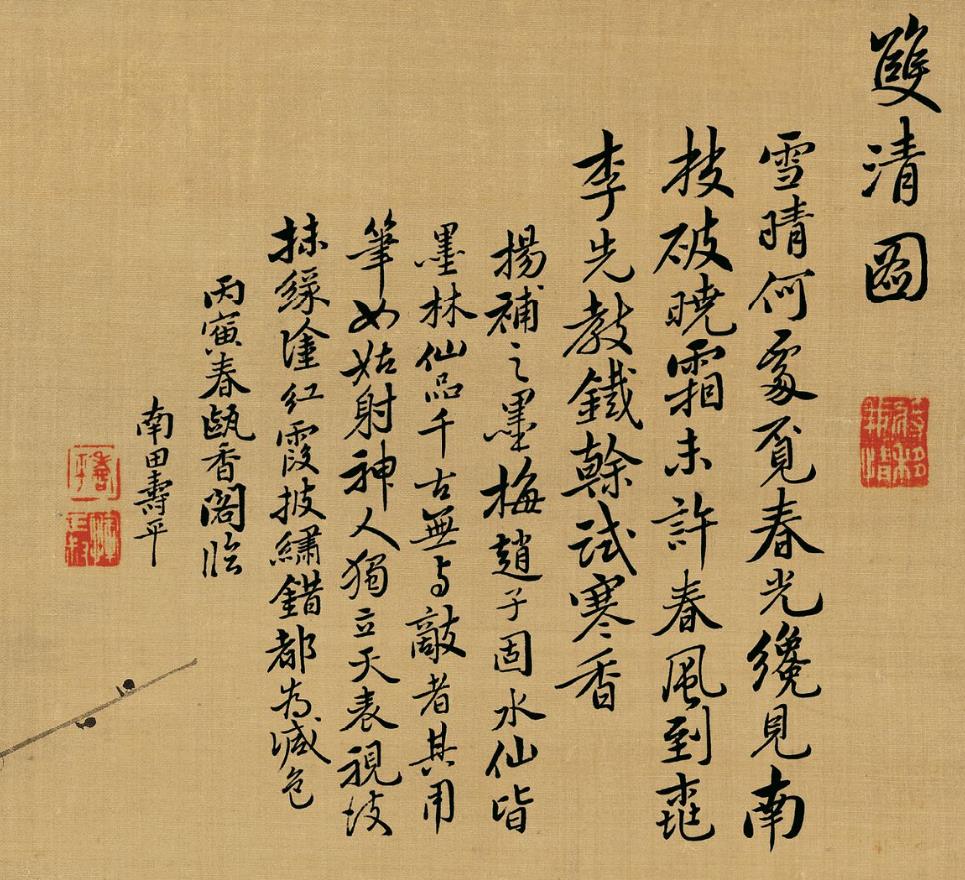 雙清圖
雪晴何處覔春光纔見南
枝破曉霜未許春風到桃
李先教鐵榦試寒香
揚補之墨梅趙子固水仙皆
墨林仙品千古無与敵者其用
筆如姑射神人獨立天表視彼
抹綠塗紅霞披繡錯都為減色
丙寅春甌香閣臨
南田壽平
壽平